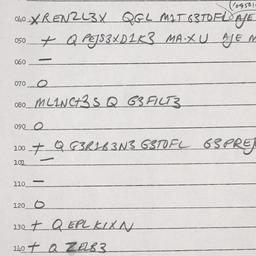 040 XRENZL3X QGL M1T G3TOFL AJE
050 + Q PEJS3XD1K3 MA·XU AJE M
060 —
070 O
080 ML1NC+3S Q G3FILT3
090 O
100 + Q G3R1B3N3 G3TOFL G3PREJ
102 —
110 —
120 O
130 + Q EPLKIXN
140 + Q ZELB3